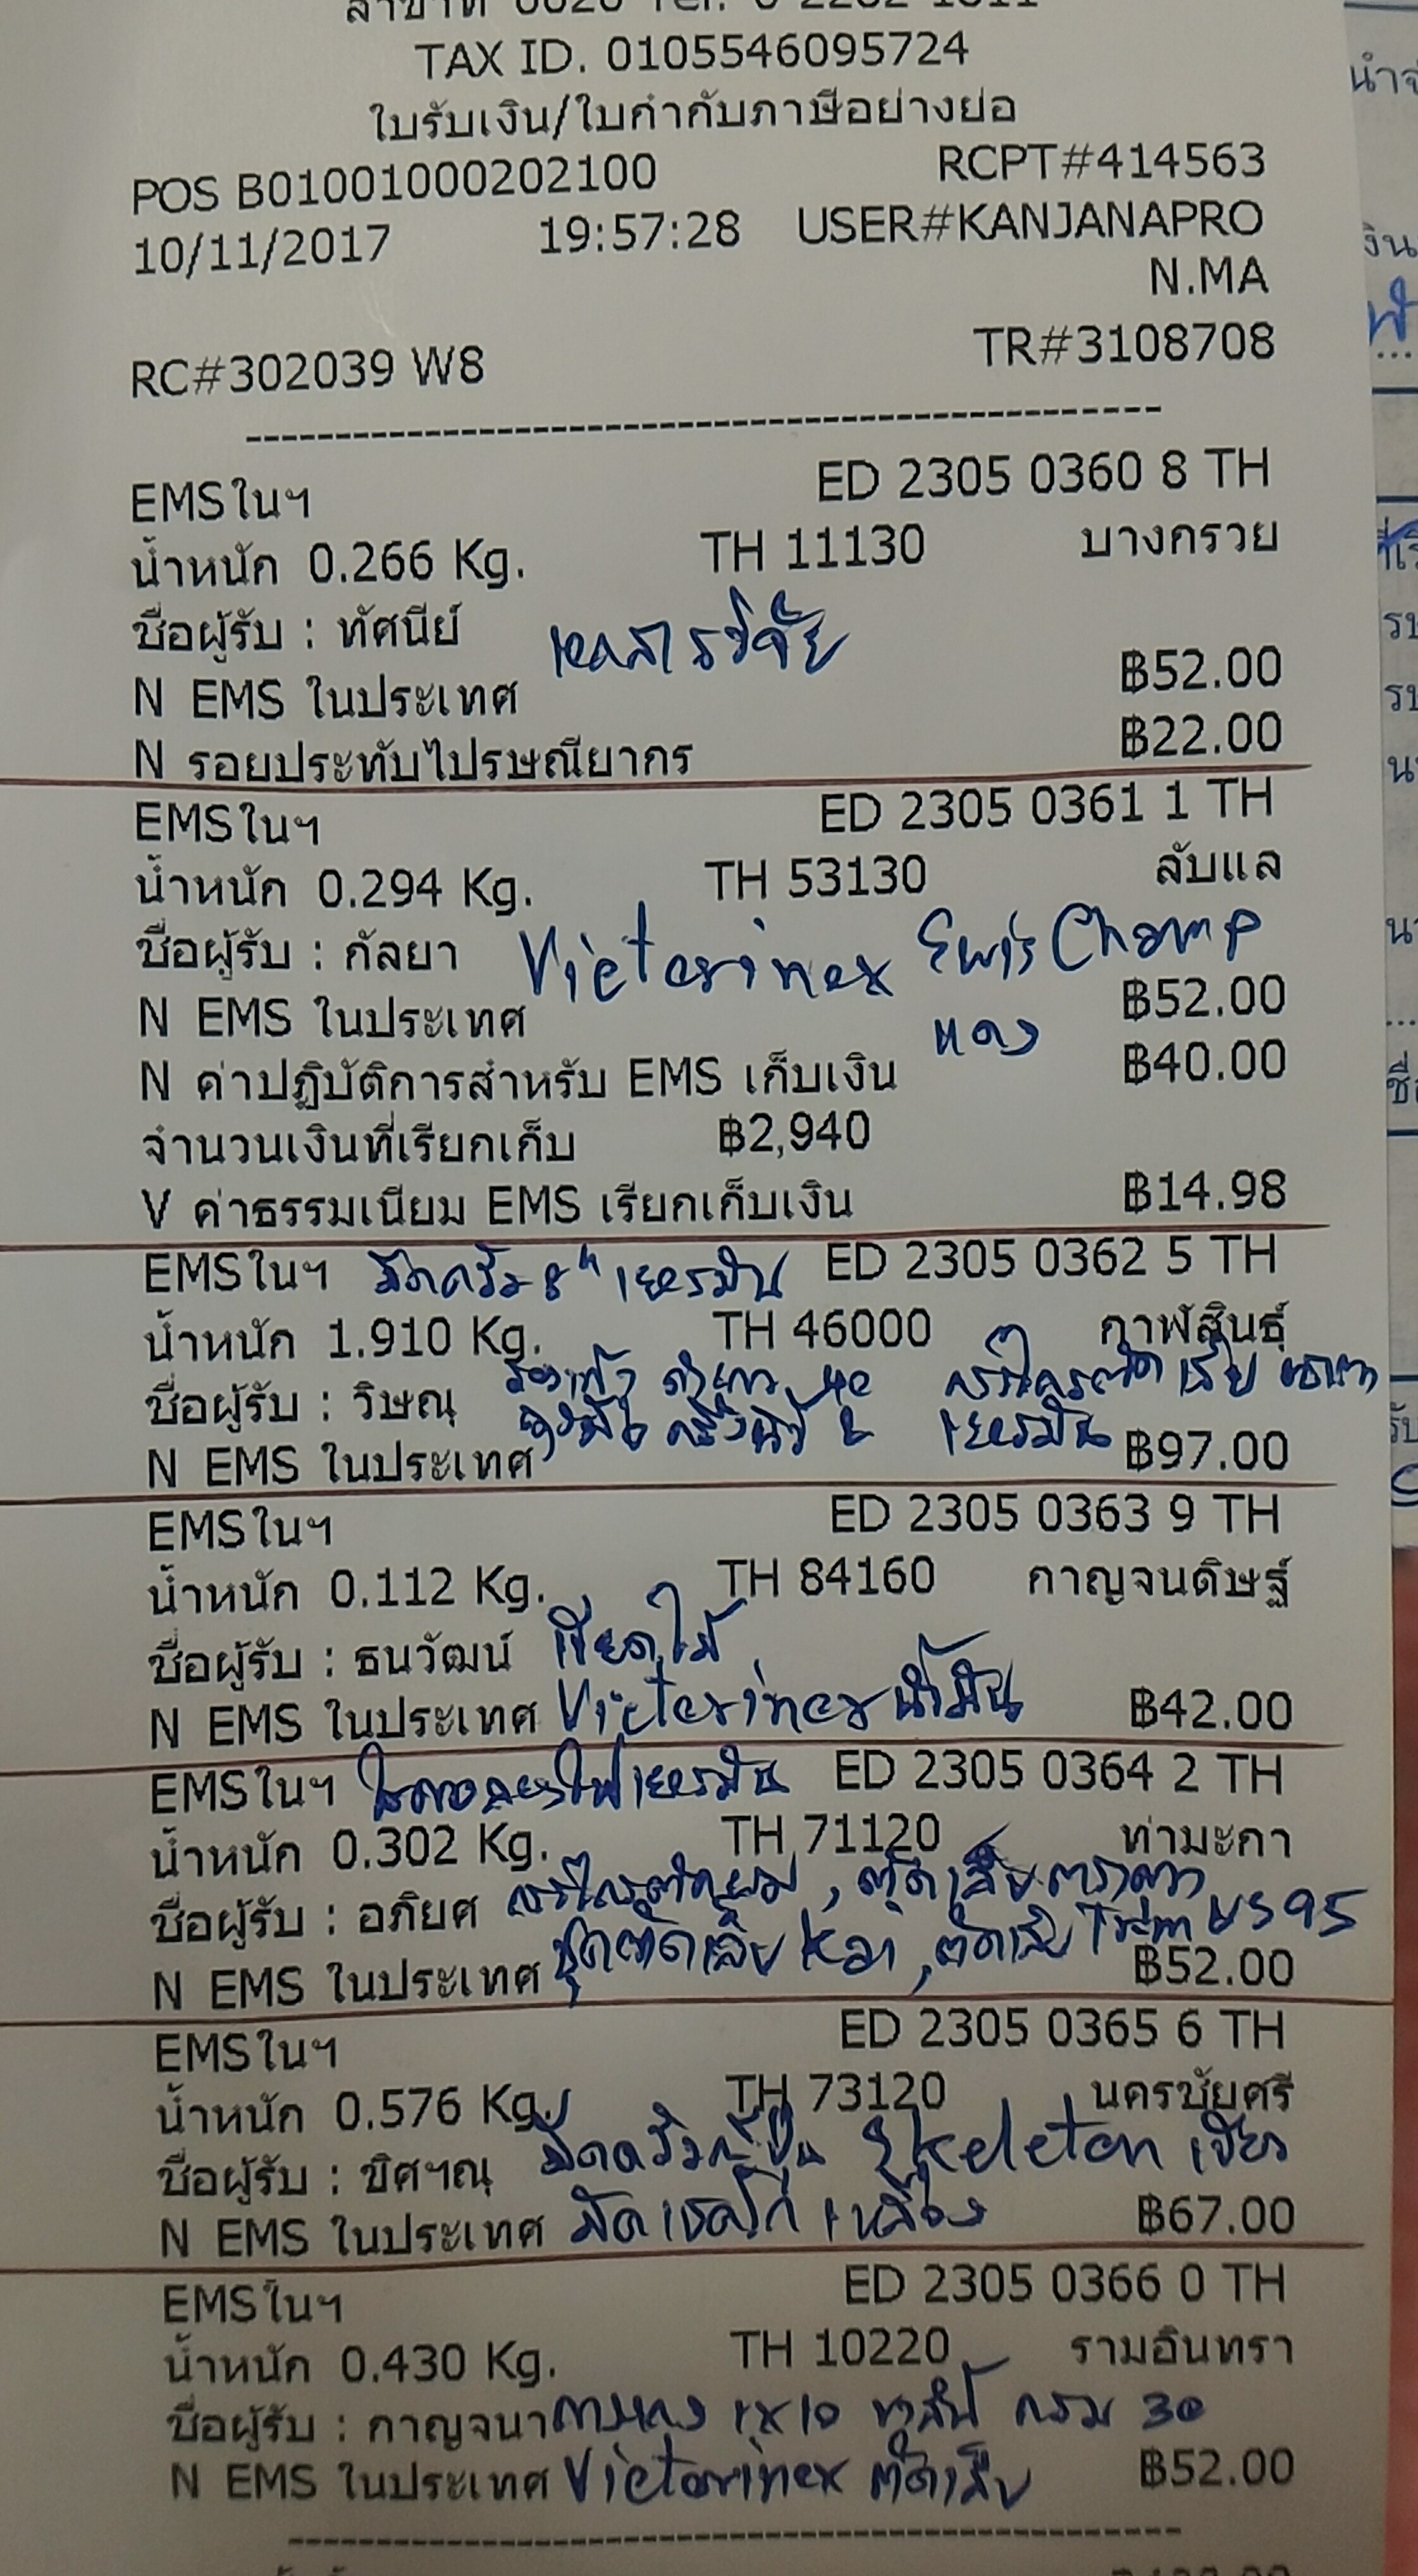 TAX ID. 0105546095724
ใบรับเงิน/ใบกำกับภาษีอย่างย่อ
POS B01001000202100 RCPT#414563
10/11/2017 19:57:28 USER#KANJANAPRO
N.MA
RC#302039 W8 TR#3108708
EMSในฯ ED 2305 0360 8 TH
น้ำหนัก 0.266 Kg. TH 11130 บางกรวย
ชื่อผู้รับ : ทัศนีย์
N EMS ในประเทศ ฿52.00
N รอยประทับไปรษณียากร ฿22.00
EMSในฯ ED 2305 0361 1 TH
น้ำหนัก 0.294 Kg. TH 53130 ลับแล
ชื่อผู้รับ : กัลยา Victorinox Swis Champ
N EMS ในประเทศ แดง ฿52.00
N ค่าปฏิบัติการสำหรับ EMS เก็บเงิน ฿40.00
จำนวนเงินที่เรียกเก็บ ฿2,940
V ค่าธรรมเนียม EMS เรียกเก็บเงิน ฿14.98
EMSในฯ มีดครัว 8" เยอรมัน ED 2305 0362 5 TH
น้ำหนัก 1.910 Kg. TH 46000 กาฬสินธุ์
ชื่อผู้รับ : วิษณุ
N EMS ในประเทศ เยอรมัน ฿97.00
EMSในฯ ED 2305 0363 9 TH
น้ำหนัก 0.112 Kg. TH 84160 กาญจนดิษฐ์
ชื่อผู้รับ : ธนวัฒน์
N EMS ในประเทศ Victorinox น้ำมัน ฿42.00
EMSในฯ เยอรมัน ED 2305 0364 2 TH
น้ำหนัก 0.302 Kg. TH 71120 ท่ามะกา
ชื่อผู้รับ : อภิยศ กรรไกรตัดผม, ตัดเล็บตราตา
N EMS ในประเทศ ชุดตัดเล็บ Kai, ตัดเล็บ Trim ฿52.00
EMSในฯ ED 2305 0365 6 TH
น้ำหนัก 0.576 Kg. TH 73120 นครชัยศรี
ชื่อผู้รับ : ขิศฯณุ Skeleton เขียว
N EMS ในประเทศ เหลือง ฿67.00
EMSในฯ ED 2305 0366 0 TH
น้ำหนัก 0.430 Kg. TH 10220 รามอินทรา
ชื่อผู้รับ : กาญจนา
N EMS ในประเทศ Victorinox ตัดเล็บ ฿52.00